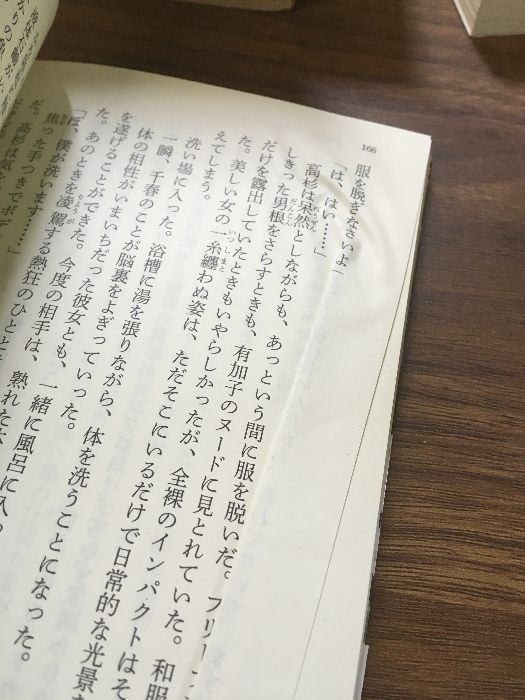 166
服を脱ぎなさいよ」
「は、はい……」
高杉は呆然としながらも、あっという間に服を脱いだ。ブリー
しきった男根をさらすときも、有加子のヌードに見とれていた。和服
だけを露出していたときもいやらしかったが、全裸のインパクトはそ
た。美しい女の一糸纏わぬ姿は、ただそこにいるだけで日常的な光景
えてしまう。
洗い場に入った。浴槽に湯を張りながら、体を洗うことになった。
一瞬、千春のことが脳裏をよぎっていった。
体の相性がいまいちだった彼女とも、一緒に風呂に入
を遂げることができた。今度の相手は、熟れた
た。あのときを凌駕する熱狂のひとと
「ぼ、僕が洗います……」
焦った手つきでボデ
だ。高杉は気を